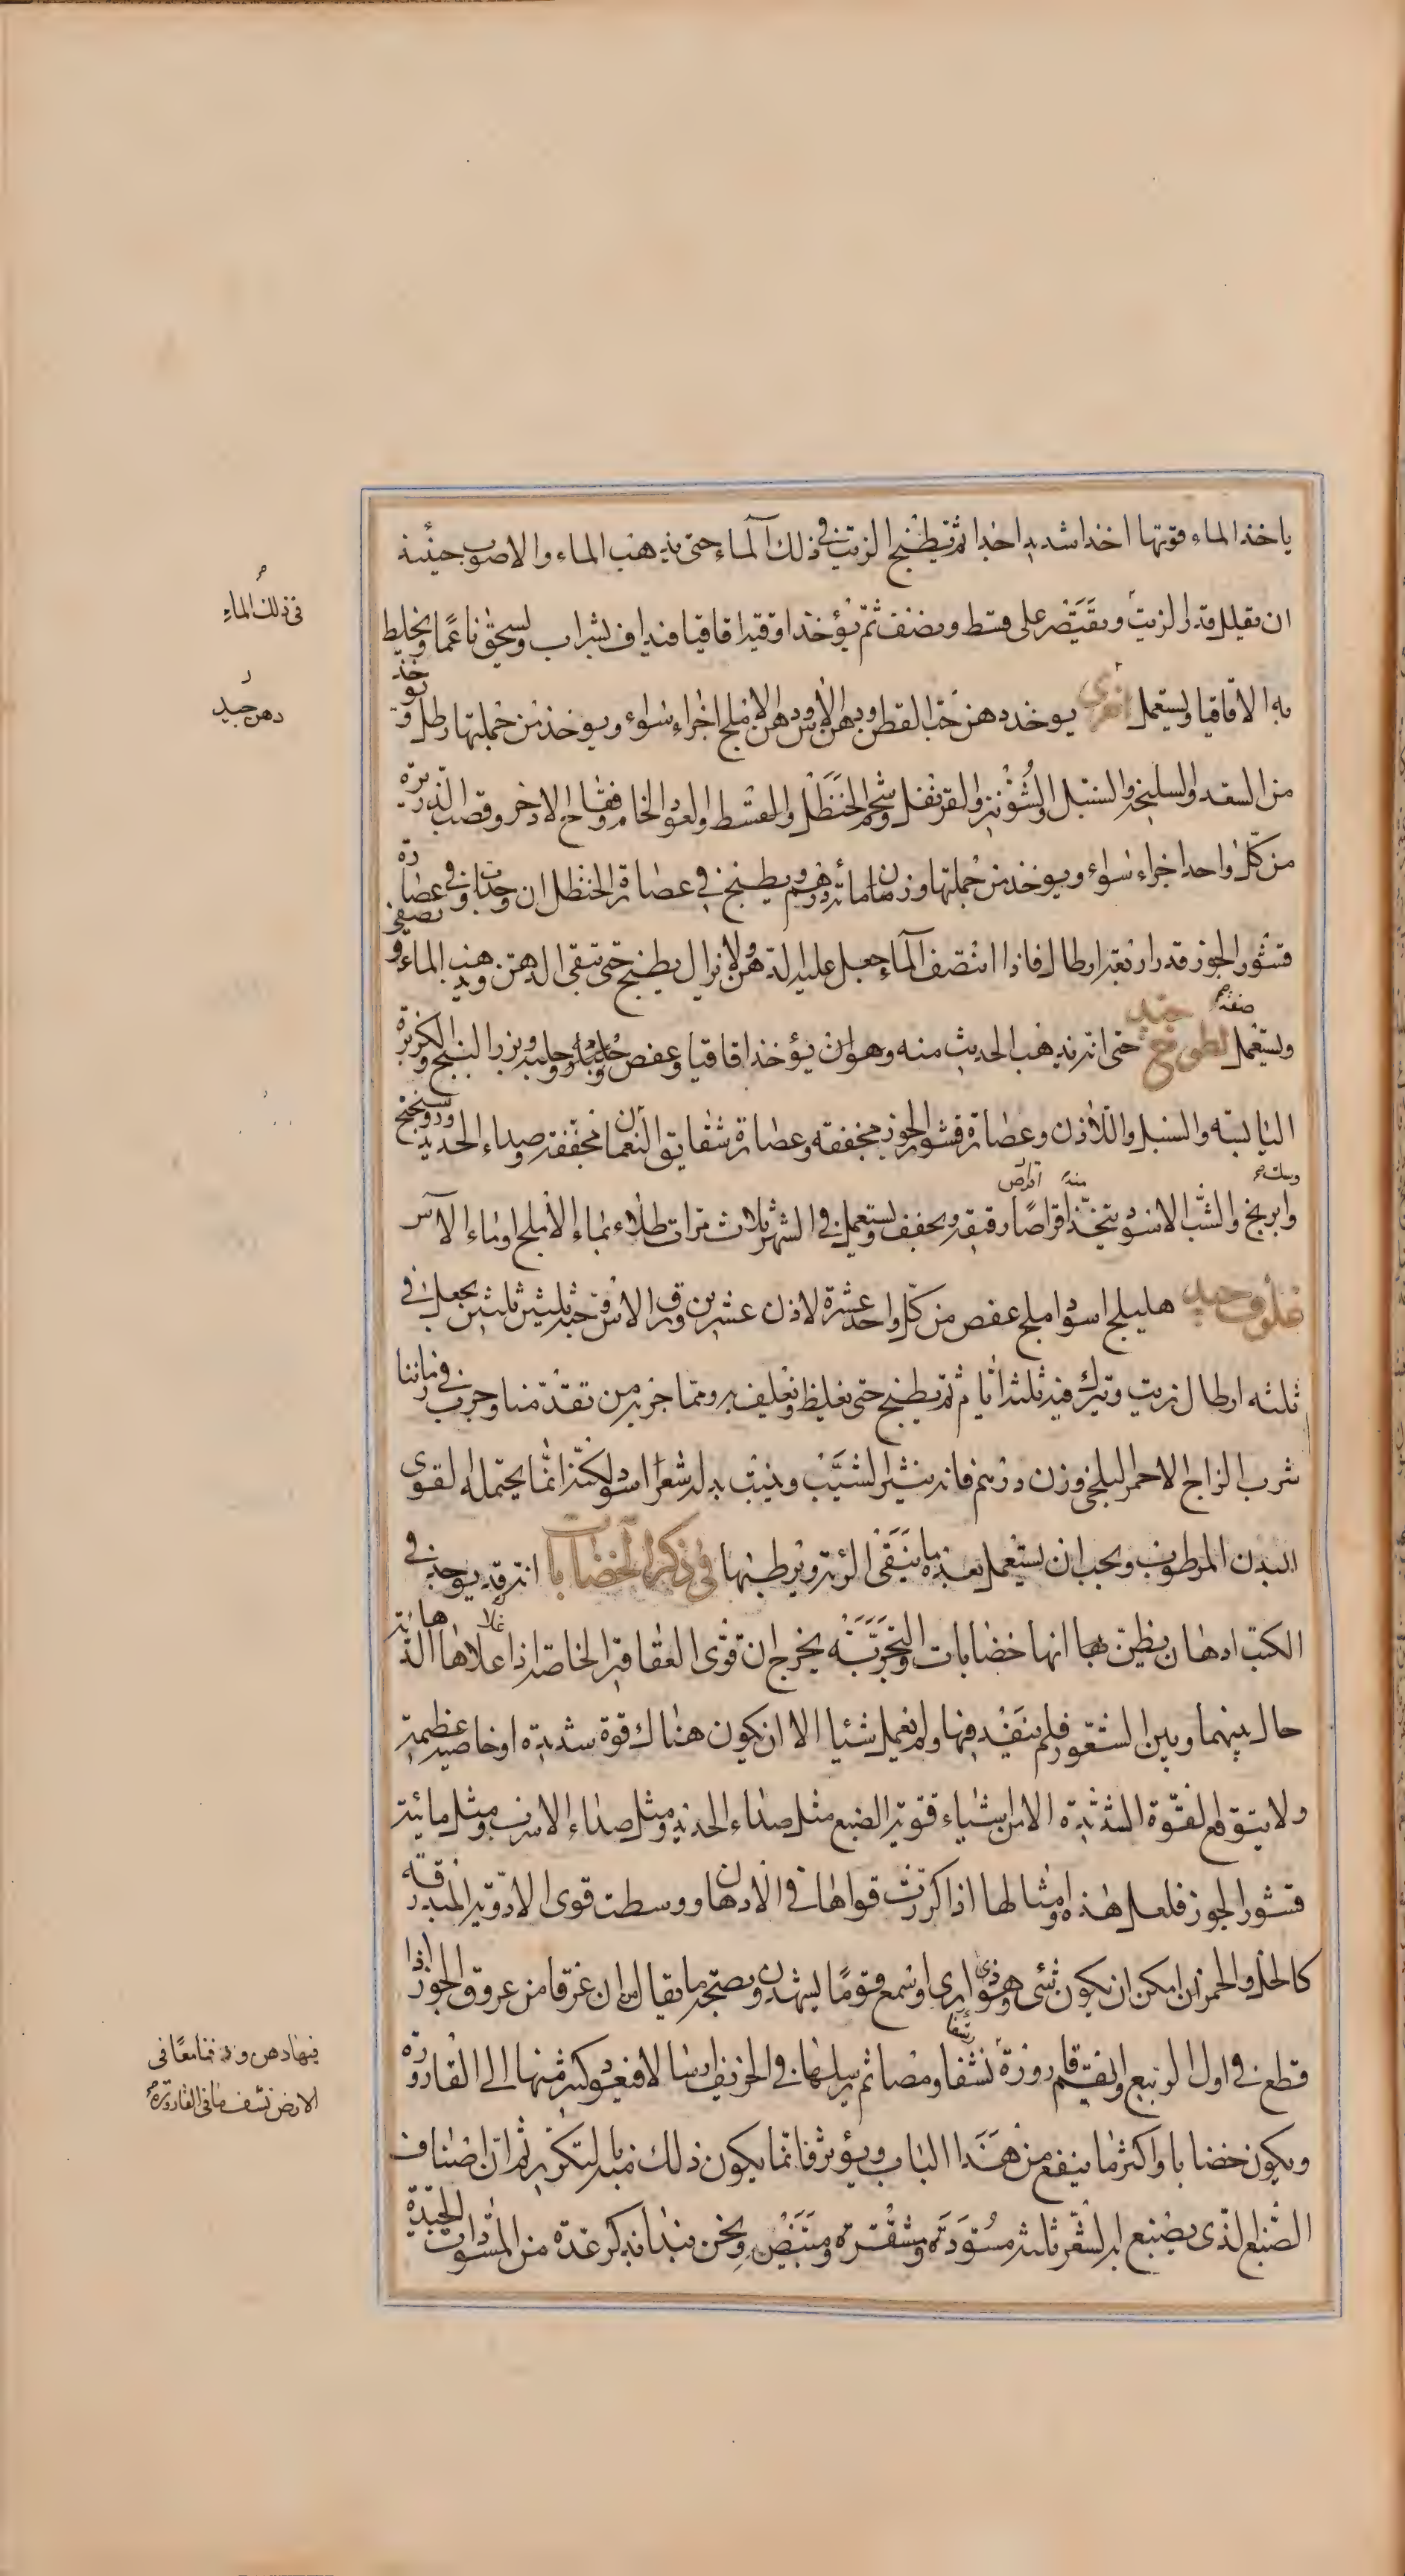 ياخذ الماء قوتها اخذا شديدا جدا ثم يطبخ الزيت في ذلك الماء حتى يذهب الماء والاصوب حينئذ
ان يقلل قدر الزيت ويقتصر على قسط ونصف ثم يؤخذ اوقية اقاقيا فيداف بشراب ويسحق ناعما ويخلط
به الاقاقيا ويستعمل اخرى يوخذ دهن حب القطن ودهن الاس ودهن الاملج اجزاء سواء ويوخذ من جملتها رطل ويوخذ
من السعد والسليخة والسنبل والشونيز والقرنفل وشحم الحنظل والقسط والعود الخام وفقاح الاذخر وقصب الذريرة
من كل واحد اجزاء سواء ويوخذ من جملتها وزن مائة درهم ويطبخ في عصارة الحنظل ان وجدت او في عصارة
قشور الجوز قدر اربعة ارطال فاذا انتصف الماء جعل عليه الدهن ولا يزال يطبخ حتى يبقى الدهن ويذهب الماء ويصفى
ويستعمل صفة لطوخ جيد حتى انه يذهب الحديث منه وهو ان يؤخذ اقاقيا وعفص وحلبة وبزر البنج والكزبرة
اليابسة والسنبل واللاذن وعصارة قشور الجوز مجففة وعصارة شقايق النعمان مجففة وصداء الحديد وروسختج
وابريج والشب الاسود يتخذ منه اقراصا رقيقة ويجفف ويستعمل في الشهر ثلاث مرات طلاء بماء الاملج او ماء الاس
غلوف جيد هليلج اسود املج عفص من كل واحد عشرة لاذن عشرين ورق الاس وحبه ثلثين ثلثين يجعل في
ثلثه ارطال زيت ويترك فيه ثلثة ايام ثم يطبخ حتى يغلظ ويغلف به ومما جربه من تقدمنا وجرب في زماننا
شرب الزاج الاحمر البلخي وزن درهم فانه ينثر الشيب وينبت بدله شعرا اسود لكنه انما يحتمله القوى
البدن المرطوب ويجب ان يستعمل بعده ما ينقى الرئة ويرطبها في ذكر الخضابات انه قد يوجد في
الكتب ادهان يظن بها انها خضابات والتجربة يخرج ان قوى العقاقير الخاصة اذا علاها الدهانية
حال بينهما وبين الشعور فلم ينفذ فيها ولم تعمل شيا الا ان يكون هناك قوة شديدة او خاصية عظيمة
ولا يتوقع القوة الشديدة الا من اشياء قوية الصبغ مثل صداء الحديد ومثل صداء الاسرب ومثل مائية
قشور الجوز فلعل هذه وامثالها اذا كررت قواها في الادهان ووسطت قوى الادوية المبدرقة
كالخل والخمر ان امكن ان يكون شئ وهو ذى ارى واسمع قوما يشهدون بصحة ما يقال من ان عرقا من عروق الجوز اذا
قطع في اول الربيع والقم قارورة نشفا ومصا ثم يرسلها في الخريف ارسالا فيعود كثير منها الى القارورة
ويكون خضابا واكثر ما ينفع من هذا الباب ويؤثر فانما يكون ذلك منه بالتكرير ثم ان اصناف
الصبغ الذى يصبغ به الشعر ثلثة مسودة ومشقرة ومبيض ونحن نبدا بذكر عدة من المسودات الجيدة
في ذلك الماء
دهن جيد
فيها دهن ودفنا معا في
الارض نشف ما في القارورة